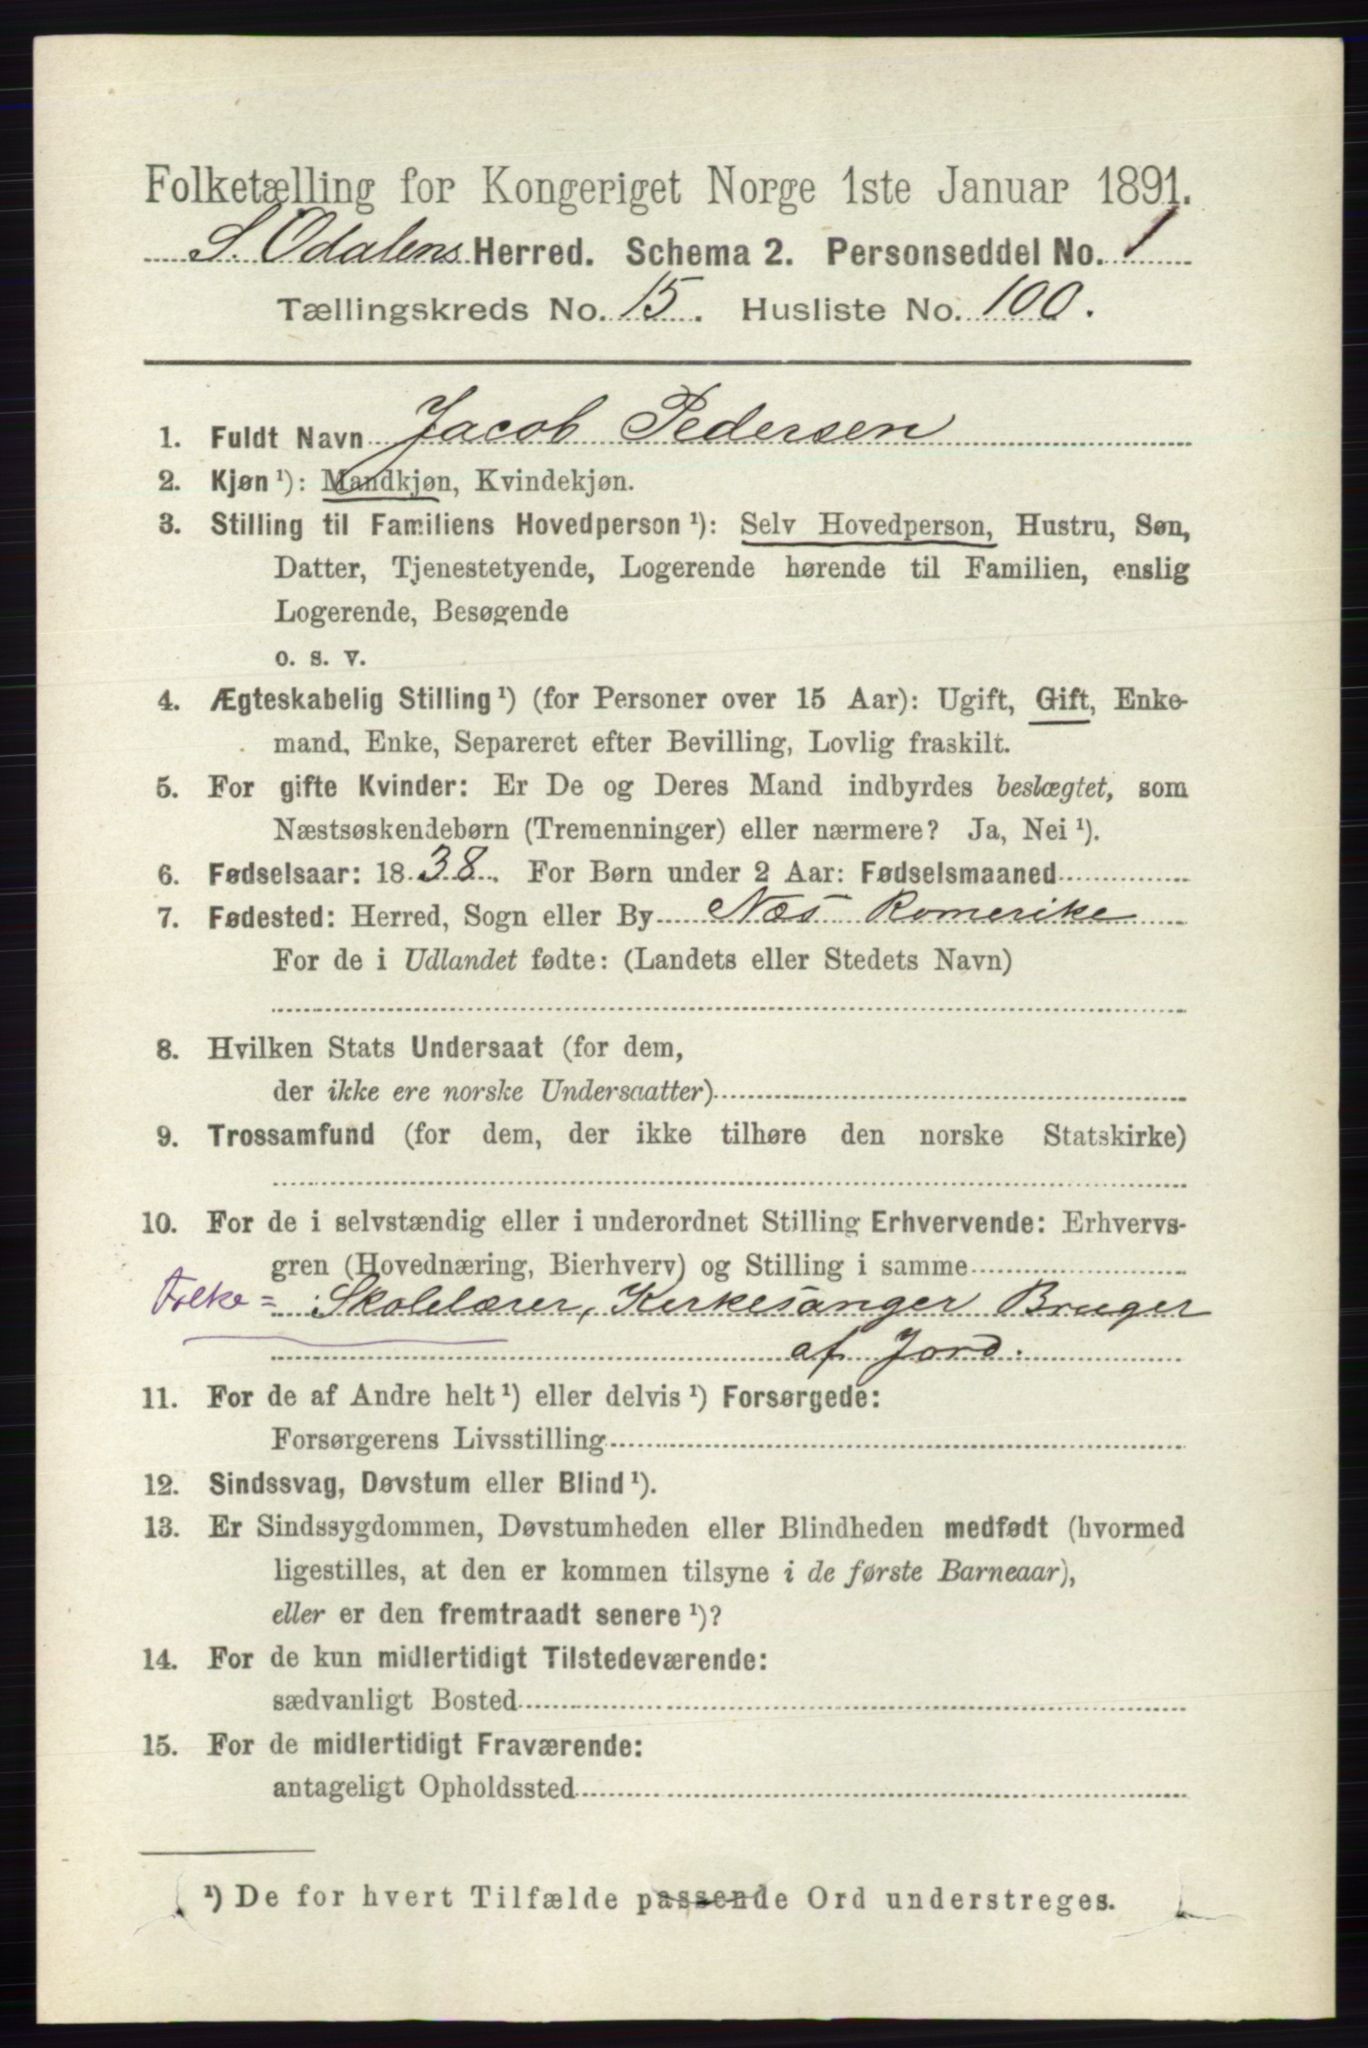 Folketælling for Kongeriget Norge 1ste Januar 1891.
S. Odalens Herred. Schema 2. Personseddel No. 1
Tællingskreds No. 15. Husliste No. 100.
1. Fuldt Navn Jacob Pedersen
2. Kjøn ¹): Mandkjøn, Kvindekjøn.
3. Stilling til Familiens Hovedperson ¹): Selv Hovedperson, Hustru, Søn,
Datter, Tjenestetyende, Logerende hørende til Familien, enslig
Logerende, Besøgende
o. s. v.
4. Ægteskabelig Stilling ¹) (for Personer over 15 Aar): Ugift, Gift, Enke-
mand, Enke, Separeret efter Bevilling, Lovlig fraskilt.
5. For gifte Kvinder: Er De og Deres Mand indbyrdes beslægtet, som
Næstsøskendebørn (Tremenninger) eller nærmere? Ja, Nei ¹).
6. Fødselsaar: 1838. For Børn under 2 Aar: Fødselsmaaned
7. Fødested: Herred, Sogn eller By Næs Romerike
For de i Udlandet fødte: (Landets eller Stedets Navn)
8. Hvilken Stats Undersaat (for dem,
der ikke ere norske Undersaatter)
9. Trossamfund (for dem, der ikke tilhøre den norske Statskirke)
10. For de i selvstændig eller i underordnet Stilling Erhvervende: Erhvervs-
gren (Hovednæring, Bierhverv) og Stilling i samme
Folke= Skolelærer, Kirkesanger Bruger
af Jord.
11. For de af Andre helt ¹) eller delvis ¹) Forsørgede:
Forsørgerens Livsstilling
12. Sindssvag, Døvstum eller Blind ¹).
13. Er Sindssygdommen, Døvstumheden eller Blindheden medfødt (hvormed
ligestilles, at den er kommen tilsyne i de første Barneaar),
eller er den fremtraadt senere ¹)?
14. For de kun midlertidigt Tilstedeværende:
sædvanligt Bosted
15. For de midlertidigt Fraværende:
antageligt Opholdssted
¹) De for hvert Tilfælde passende Ord understreges.